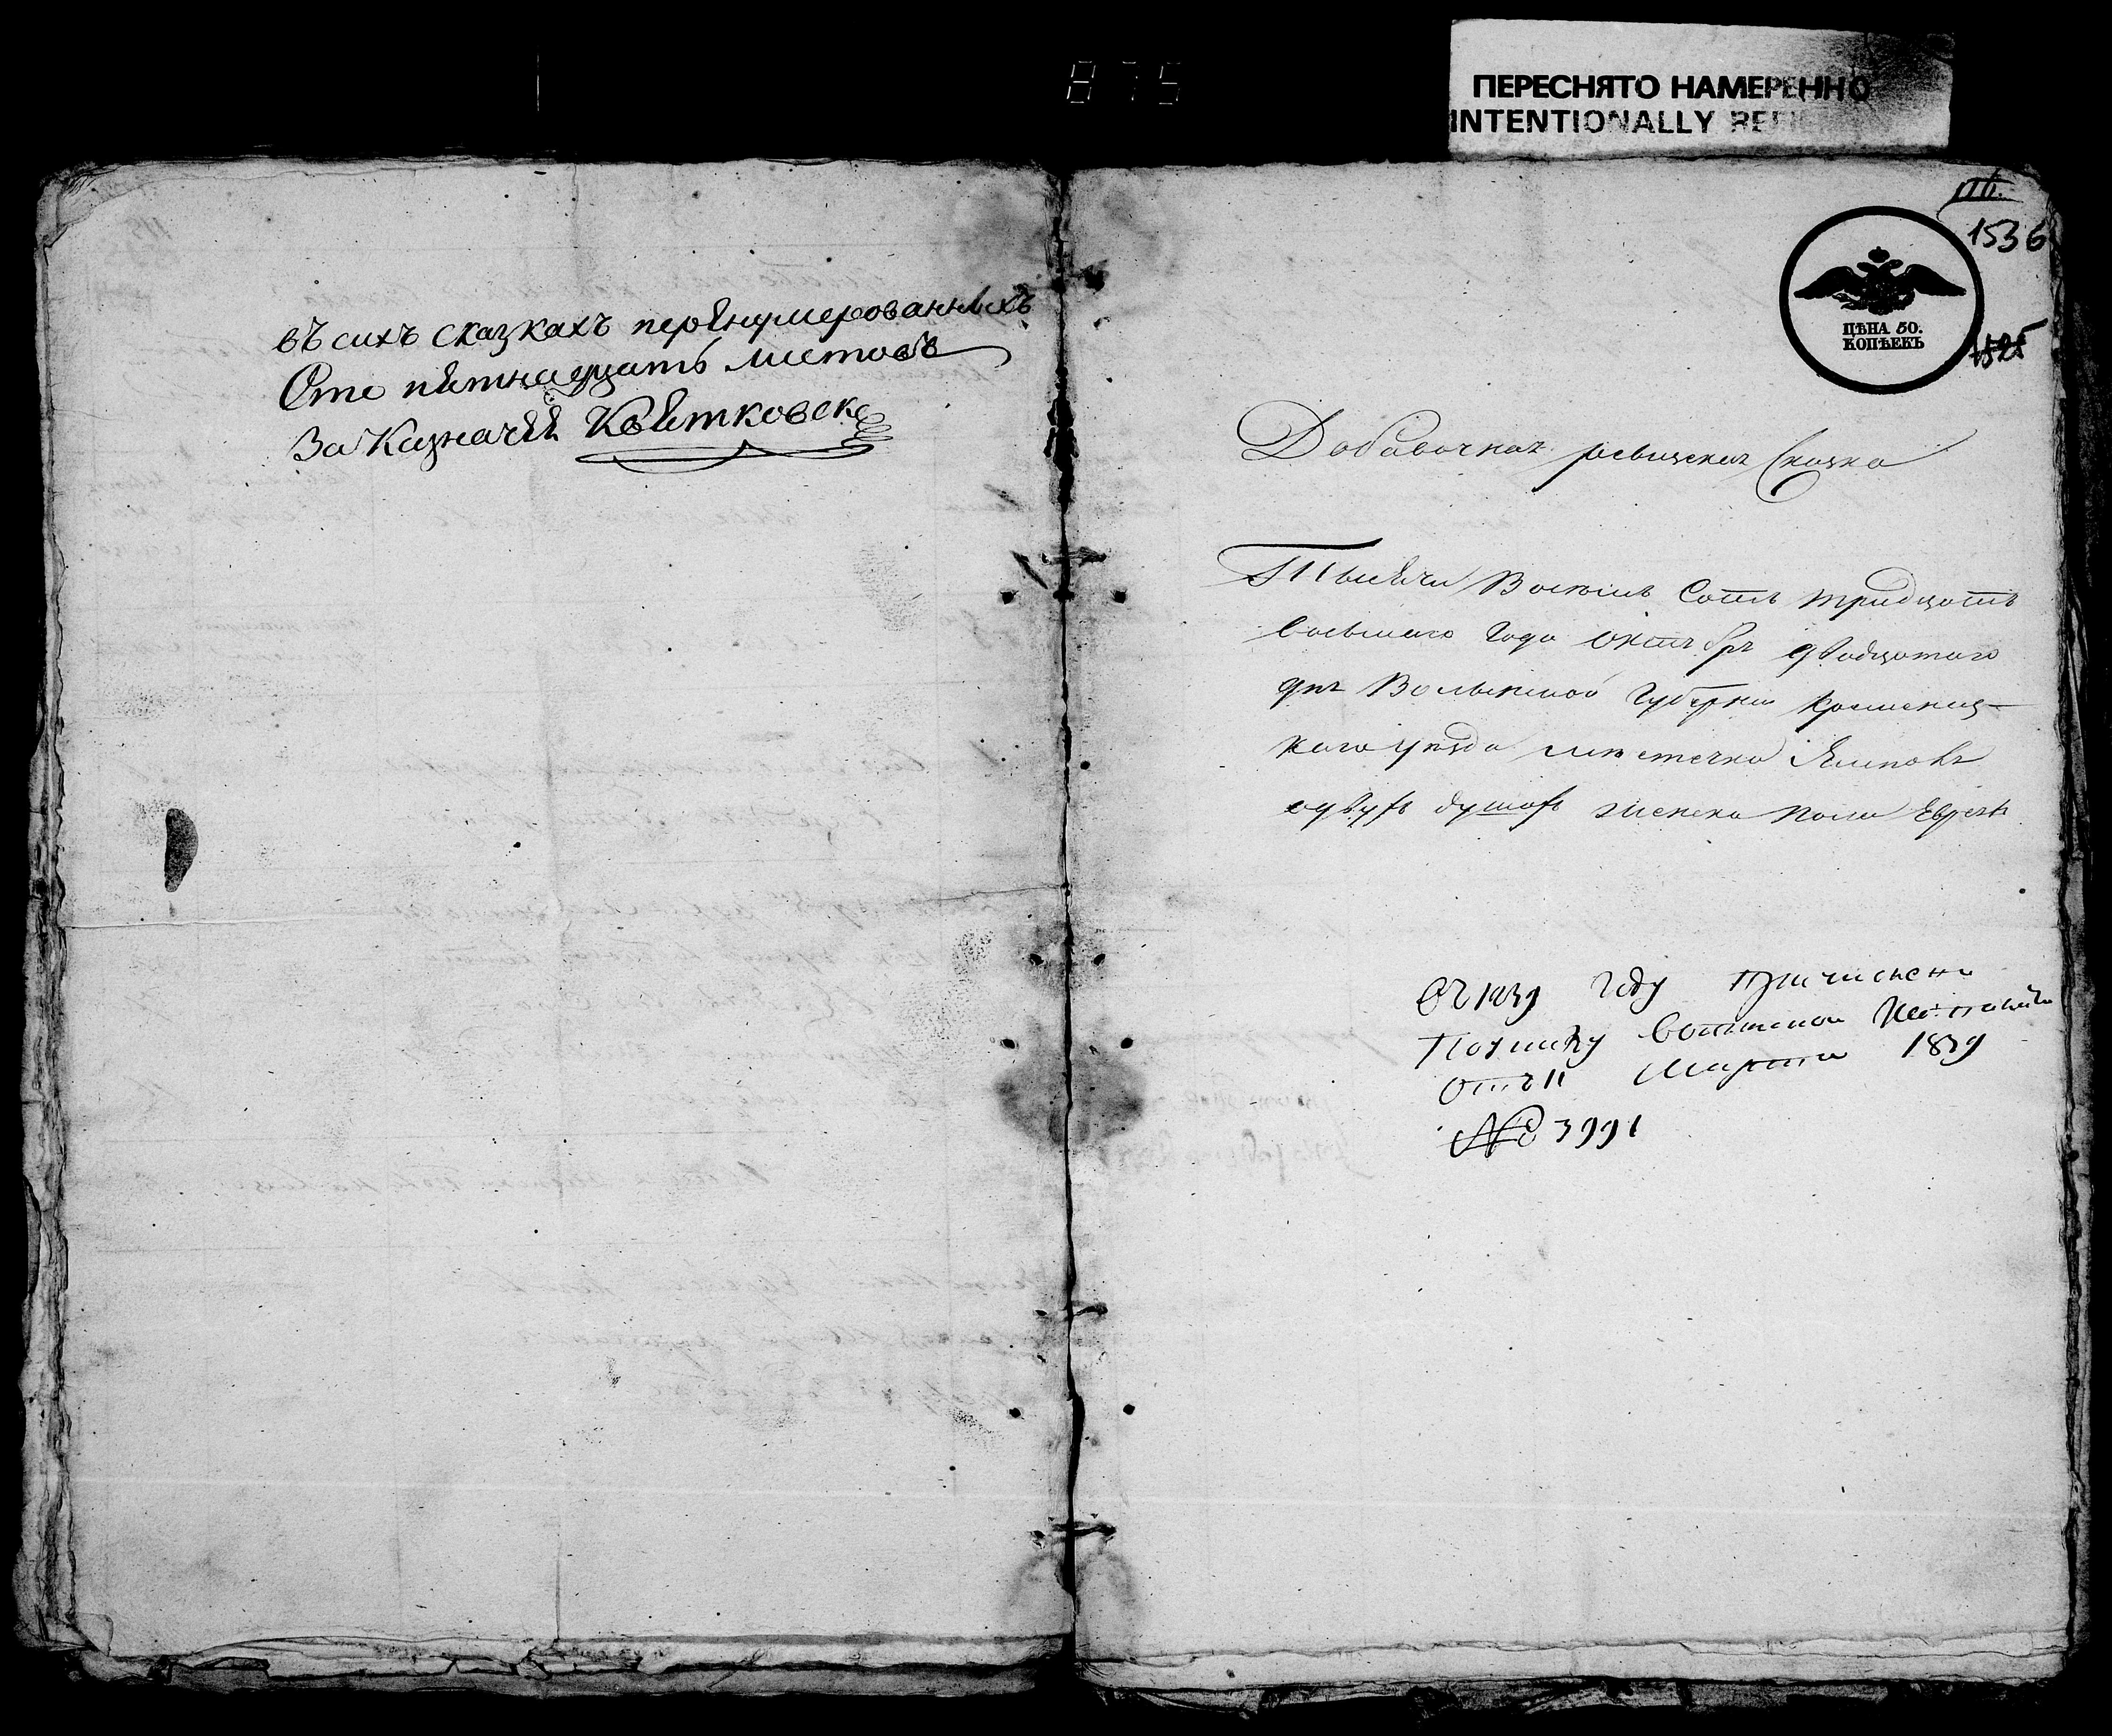 875
ПЕРЕСНЯТО НАМЕРЕННО
INTENTIONALLY
въ сихъ сказкахъ перенумерованныхъ
Сто пятнадцать листовъ
За Казначея Квятковск
116.
1536
ЦѢНА 50.
КОПѢЕКЪ
1525
Добавочная ревизская Сказка
Тысяча Восемь Сотъ тридцать
восьмаго Года Октября двадцатаго
дня Волынской Губернии Кременец-
каго уезда местечка Ямполя
одвухъ душахъ женска пола Евреях
Съ 1839 году причислены
Поуказу Волынской
отъ 11 Марта 1839
№ 3991